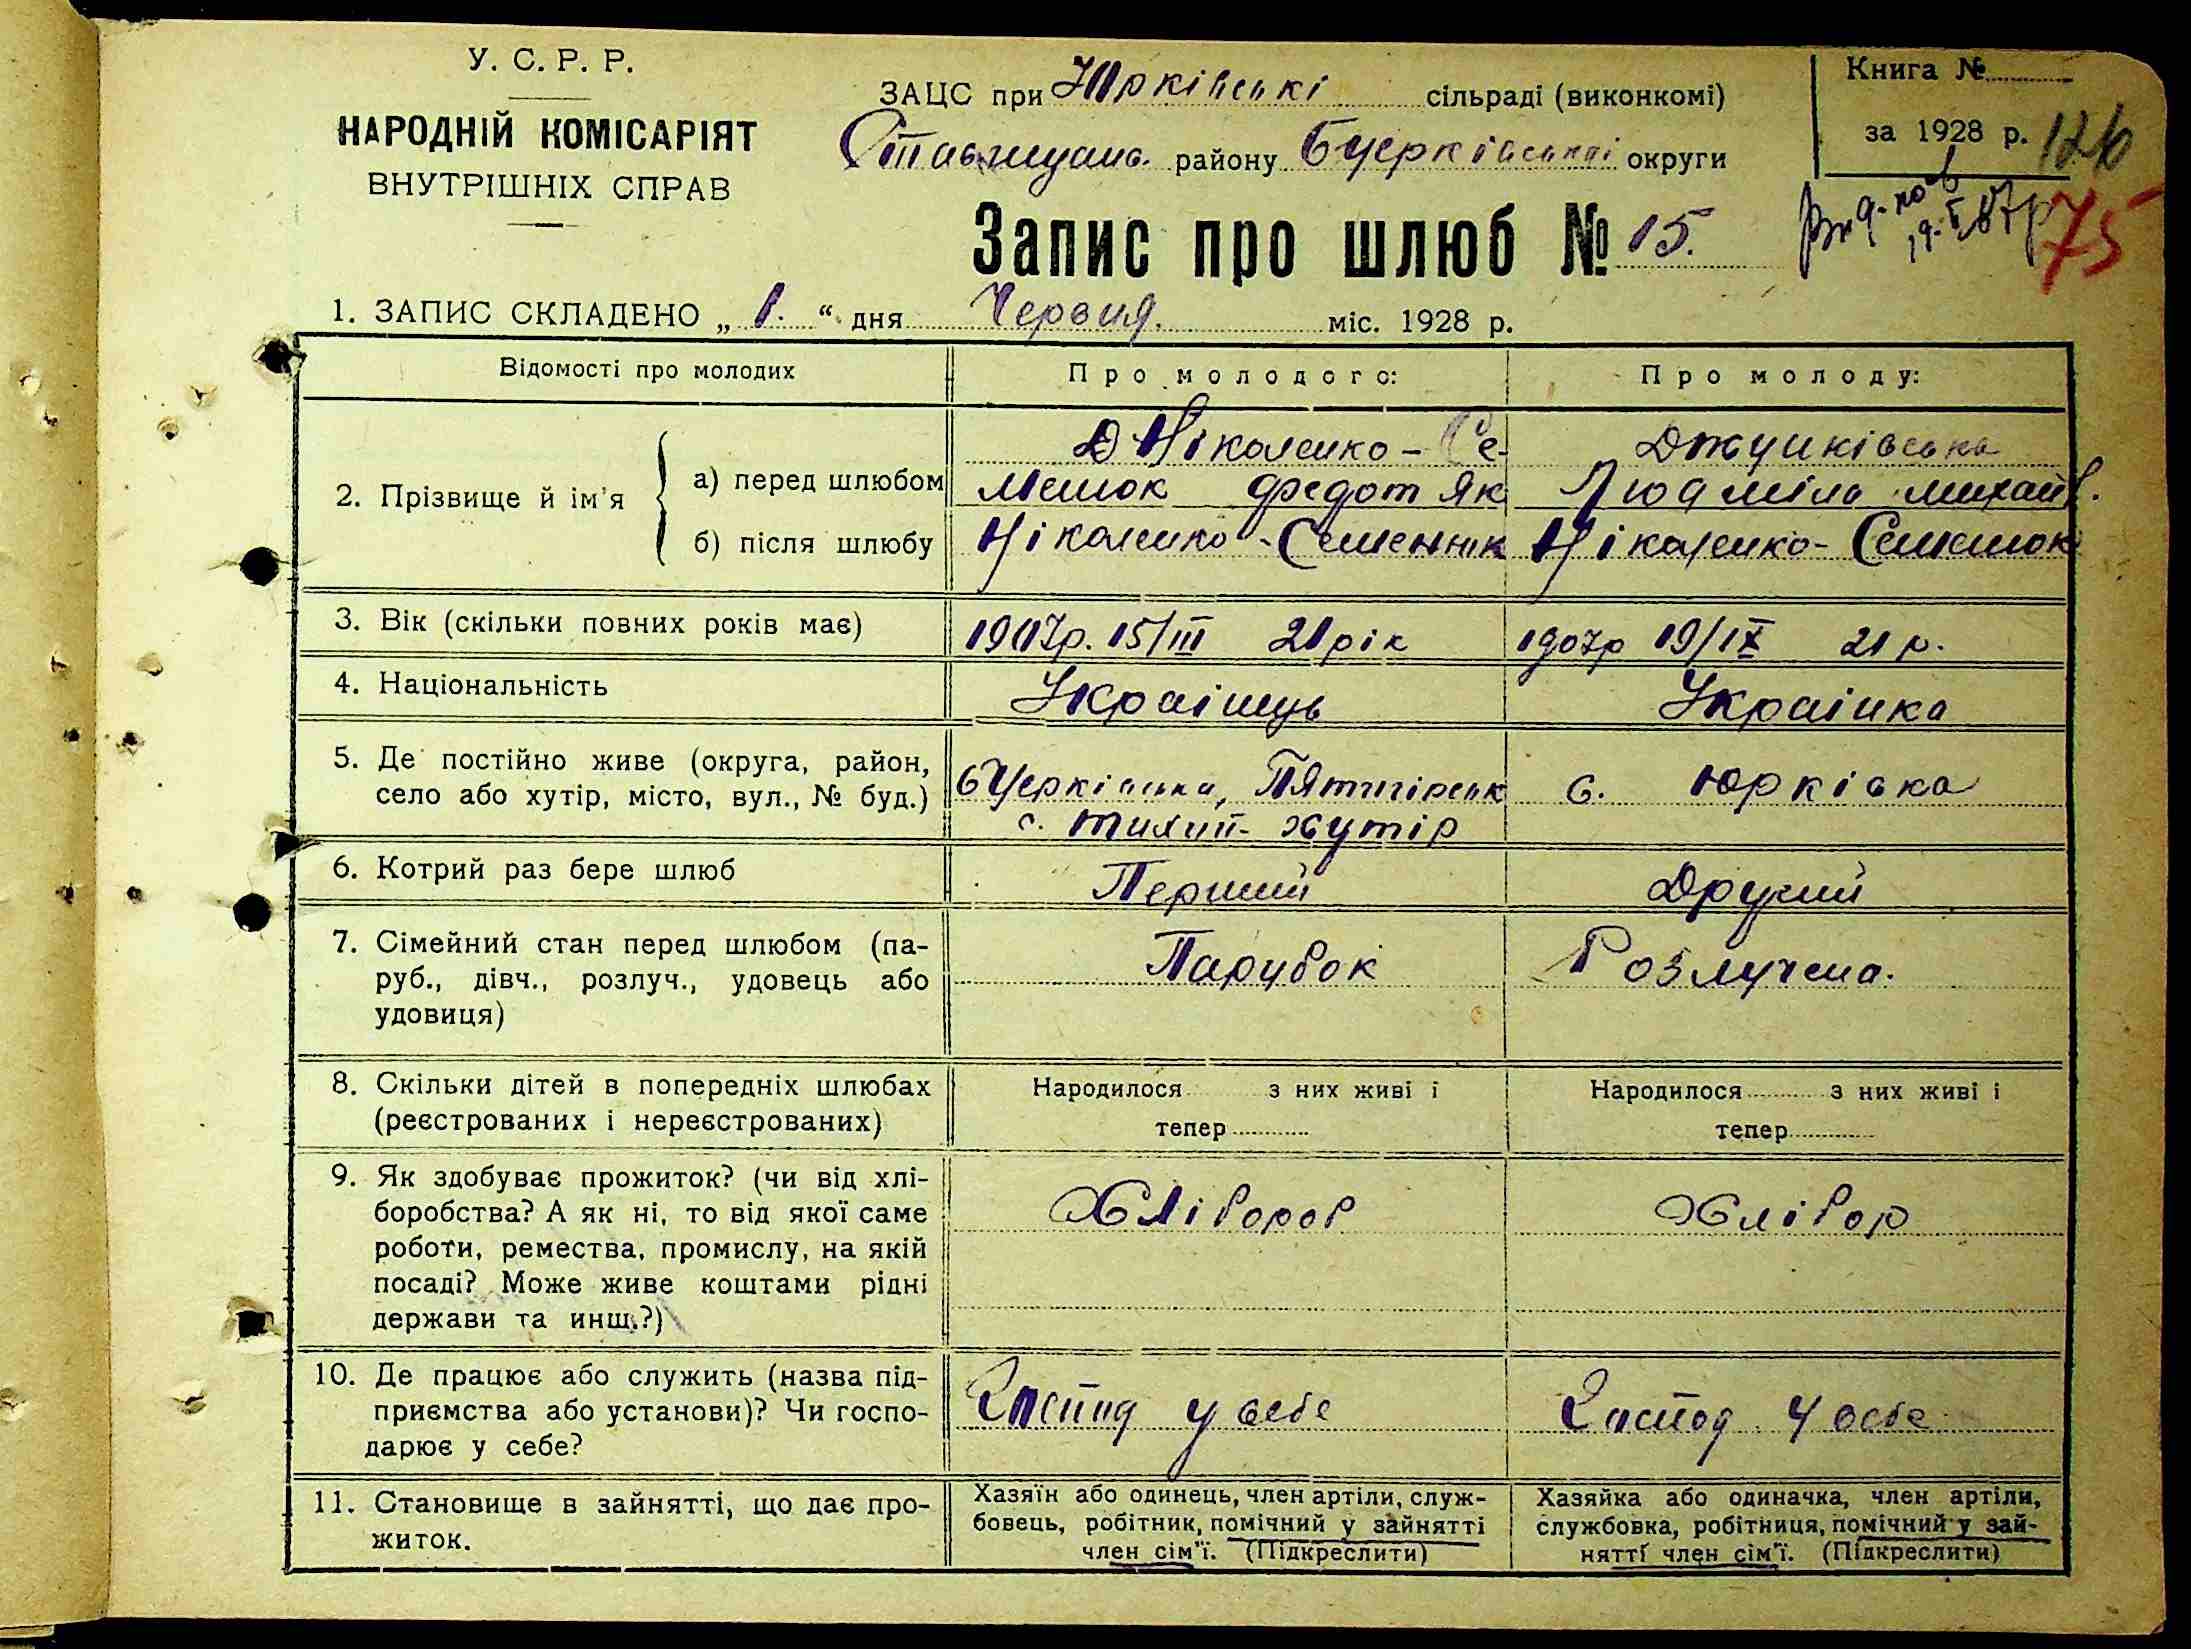 У. С. Р. Р.
НАРОДНІЙ КОМІСАРІЯТ
ВНУТРІШНІХ СПРАВ
ЗАЦС при Юрківські сільраді (виконкомі)
Ставищан. району БЦерківської округи
Книга №
за 1928 р. 126
75
Запис про шлюб № 15.
1. ЗАПИС СКЛАДЕНО „ 1. “ дня Червня. міс. 1928 р.
Відомості про молодих
Про молодого:
Про молоду:
2. Прізвище й ім'я
а) перед шлюбом
Ніколенко - Се-
менюк Федот Як
Людміла Михайл.
б) після шлюбу
Ніколенко - Семенюк
Ніколенко - Семенюк
3. Вік (скільки повних років має)
1907р. 15/III 21 рік
1907р 19/IX 21 р.
4. Національність
Украінець
Украінка
5. Де постійно живе (округа, район,
село або хутір, місто, вул., № буд.)
БЦерківська, Пятигірськ
с. Тихий-хутір
с. Юрківка
6. Котрий раз бере шлюб
Перший
Другий
7. Сімейний стан перед шлюбом (па-
руб., дівч., розлуч., удовець або
удовиця)
Парубок
Розлучена.
8. Скільки дітей в попередніх шлюбах
(реєстрованих і нереєстрованих)
Народилося з них живі і
тепер
Народилося з них живі і
тепер
9. Як здобуває прожиток? (чи від хлі-
боробства? А як ні, то від якої саме
роботи, ремества, промислу, на якій
посаді? Може живе коштами рідні
держави та инш.?)
Хлібороб
Хлібор
10. Де працює або служить (назва під-
приємства або установи)? Чи госпо-
дарює у себе?
Господ у себе
Господ у себе
11. Становище в зайнятті, що дає про-
житок.
Хазяїн або одинець, член артіли, служ-
бовець, робітник, помічний у зайнятті
член сім'ї. (Підкреслити)
Хазяйка або одиначка, член артіли,
службовка, робітниця, помічний у зай-
нятті член сім'ї. (Підкреслити)